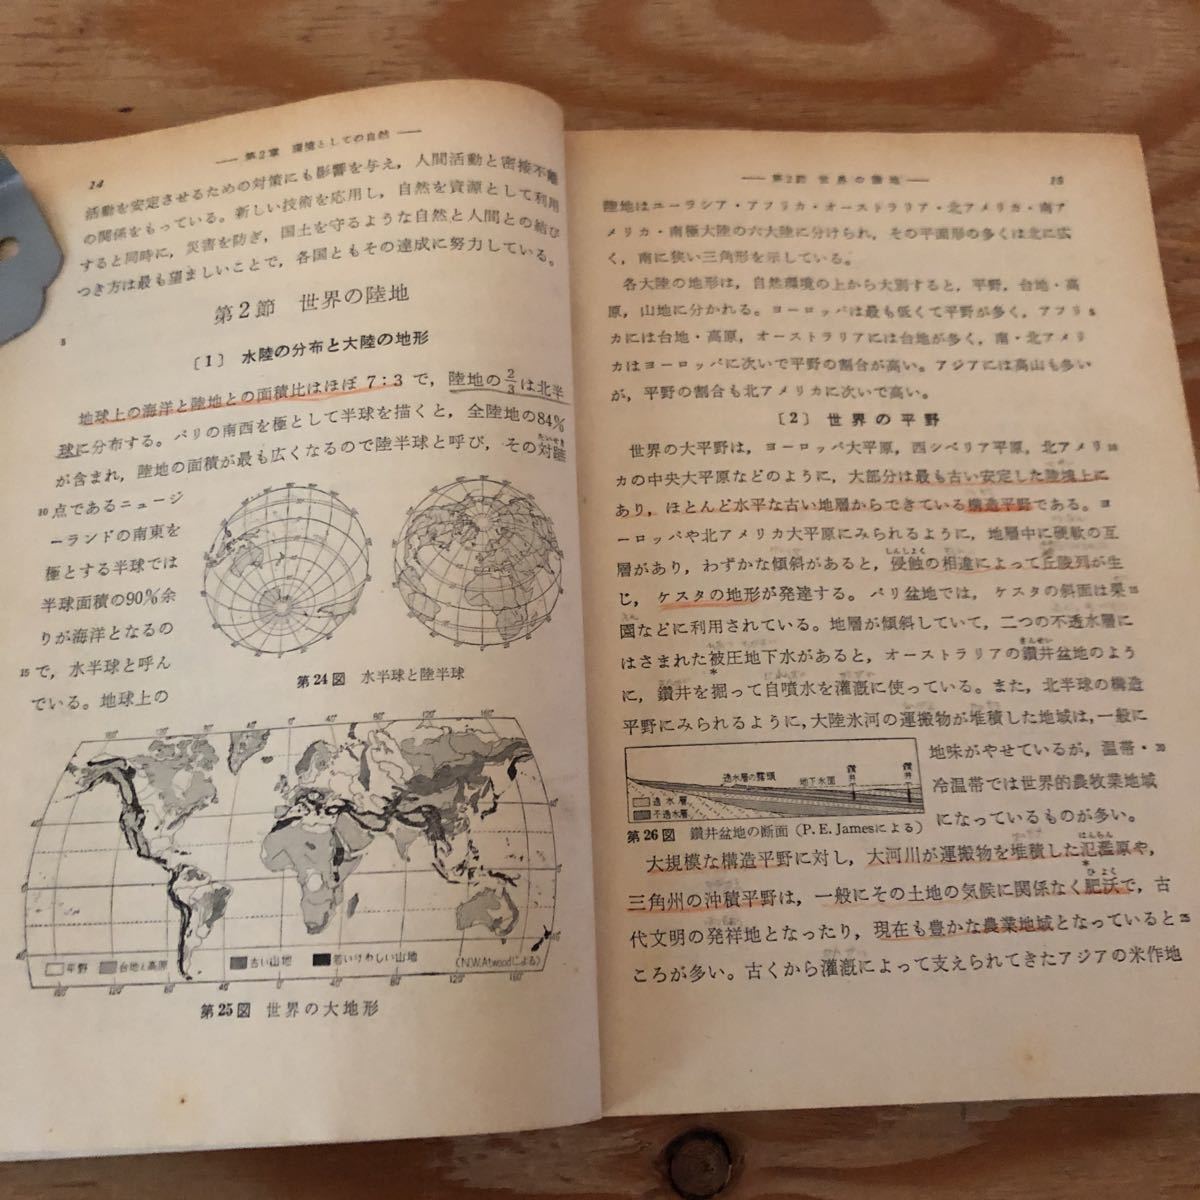 24
— 第2章 環境としての自然 —
活動を安定させるための対策にも影響を与え，人間活動と密接不離
の関係をもっている。新しい技術を応用し，自然を資源として利用
すると同時に，災害を防ぎ，国土を守るような自然と人間との結び
つき方は最も望ましいことで，各国ともその達成に努力している。
第2節　世界の陸地
5
〔1〕　水陸の分布と大陸の地形
地球上の海洋と陸地との面積比はほぼ 7：3 で，陸地の 2/3 は北半
球に分布する。パリの南西を極として半球を描くと，全陸地の84%
が含まれ，陸地の面積が最も広くなるので陸半球と呼び，その対蹠
たいせき
10 点であるニュージ
ーランドの南東を
極とする半球では
半球面積の90%余
りが海洋となるの
15 で，水半球と呼ん
でいる。地球上の
第24図　水半球と陸半球
平野
台地と高原
古い山地
若いけわしい山地
(N.W.Atwoodによる)
第25図　世界の大地形
— 第2節 世界の陸地 —
陸地はユーラシア・アフリカ・オーストラリア・北アメリカ・南ア
メリカ・南極大陸の六大陸に分けられ，その平面形の多くは北に広
く，南に狭い三角形を示している。
各大陸の地形は，自然環境の上から大別すると，平野，台地・高
原，山地に分かれる。ヨーロッパは最も低くて平野が多く，アフリ 5
カには台地・高原，オーストラリアには台地が多く，南・北アメリ
カはヨーロッパに次いで平野の割合が高い。アジアには高山も多い
が，平野の割合も北アメリカに次いで高い。
〔2〕　世界の平野
世界の大平野は，ヨーロッパ大平原，西シベリア平原，北アメリ 10
カの中央大平原などのように，大部分は最も古い安定した陸塊上に
あり，ほとんど水平な古い地層からできている構造平野である。ヨ
ーロッパや北アメリカ大平原にみられるように，地層中に硬軟の互
層があり，わずかな傾斜があると，侵蝕の相違によって丘陵列が生
しんしょく
じ，ケスタの地形が発達する。パリ盆地では，ケスタの斜面は果 15
園などに利用されている。地層が傾斜していて，二つの不透水層に
はさまれた被圧地下水があると，オーストラリアの鑽井盆地のよう
さんせい
に，鑽井を掘って自噴水を灌漑に使っている。また，北半球の構造
平野にみられるように，大陸氷河の運搬物が堆積した地域は，一般に
地味がやせているが，温帯・ 20
冷温帯では世界的農牧業地域
になっているものが多い。
透水層の露頭
地下水面
鑽井
鑽井
透水層
不透水層
第26図　鑽井盆地の断面（P. E. Jamesによる）
大規模な構造平野に対し，大河川が運搬物を堆積した氾濫原や，
はんらん
三角州の沖積平野は，一般にその土地の気候に関係なく肥沃で，古
ひよく
代文明の発祥地となったり，現在も豊かな農業地域となっていると 25
ころが多い。古くから灌漑によって支えられてきたアジアの米作地